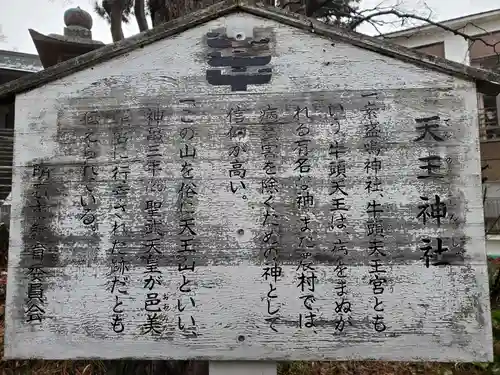 天王神社
一、素盞鳴神社、牛頭天王宮とも
いう。牛頭天王は、病をまぬが
れる有名な神、また農村では、
病虫害を除くための神として
信仰が高い。
一この山を俗に天王山といい、
神亀三年 聖武天皇が邑美
に行幸された跡だとも
伝えられている。
教育委員会